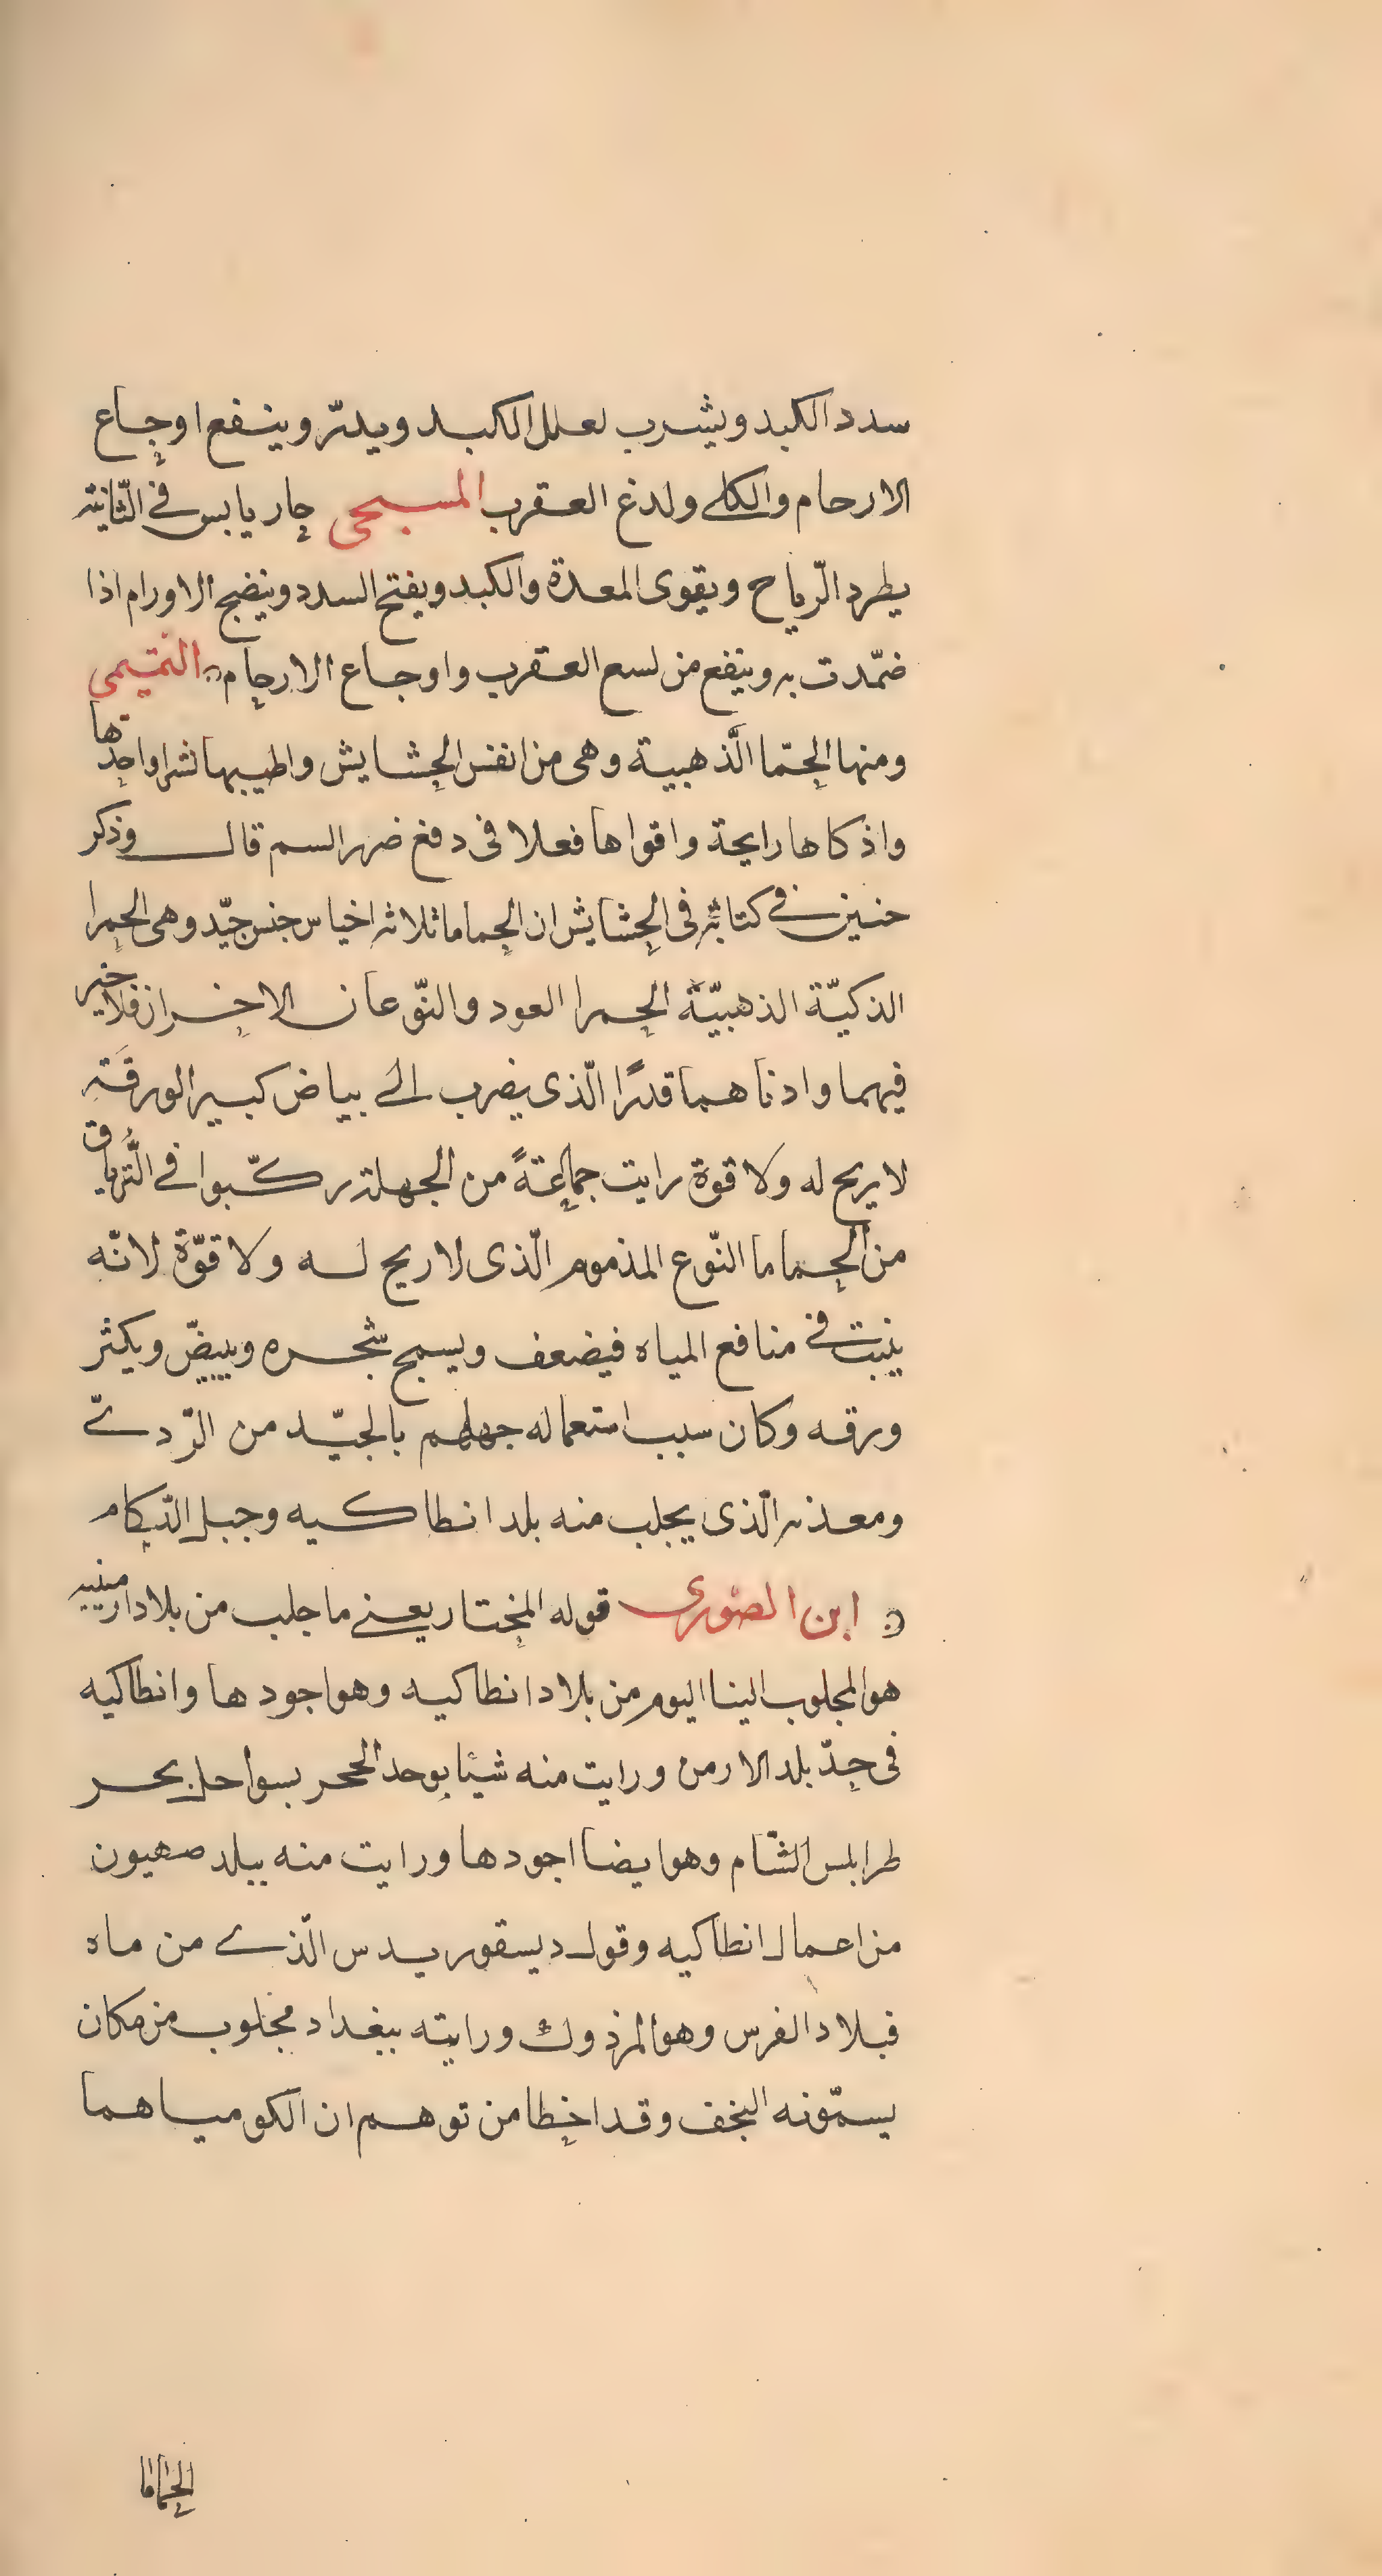 سدد الكبد ويشرب لعلل الكبد ويدرّ وينفع اوجاع
الارحام والكلى ولدغ العقرب المسيحى حار يابس في الثّانية
يطرد الرّياح ويقوى المعدة والكبد ويفتح السدد وينضج الاورام اذا
ضمّدت به وينفع من لسع العقرب واوجاع الارحام التميمى
ومنها الحمّا الّذهبية وهى من انفس الحشايش واطيبها نشرا واحدّها
واذكاها رايحة واقواها فعلا فى دفع ضرر السم قال وذكر
حنين في كتابه فى الحشايش ان الحماما ثلاثه اخياس جنس جيّد وهى الحمرا
الذكيّة الذهبيّة الحمرا العود والنّوعان الاخران فلا خير
فيهما وادناهما قدرًا الّذى يضرب الى بياض كبير الورقَة
لا يريح له ولا قوة رايت جماعةً من الجهلة ركّبوا في الّترياق
من الحماما النّوع المذموم الّذى لا ريح له ولا قوّة لانّه
ينبت في منافع المياه فيضعف ويسمج شجره ويبيضّ ويكثر
ورقه وكان سبب استعماله جهلهم بالجيّد من الرّدىّ
ومعدنه الّذى يجلب منه بلد انطاكيه وجبل اللّكام
ابن الصورى قوله المختار يعنى ما جلب من بلاد ارمينيه
هو المجلوب الينا اليوم من بلاد انطاكيه وهو اجودها وانطاكيه
فى حدّ بلد الارمن ورايت منه شيئا بوحد الحجر بسواحل بحر
طرابلس الشّام وهو ايضا اجودها ورايت منه ببلد صهيون
من اعمال انطاكيه وقول ديسقوريدس الّذى من ماه
فبلاد الفرس وهو المرذول ورايته ببغداد مجلوب من مكان
يسمّونه النجف وقد اخطا من توهم ان الكوميا هما
الحماما